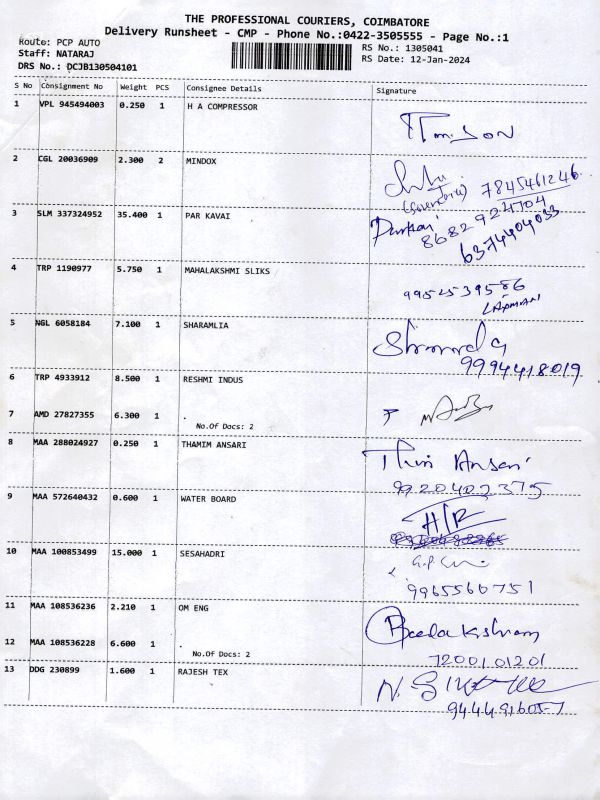 THE PROFESSIONAL COURIERS, COIMBATORE
Delivery Runsheet - CMP - Phone No.:0422-3505555 - Page No.:1
Route: PCP AUTO
Staff: NATARAJ
DRS No.: DCJB130504101
RS No.: 1305041
RS Date: 12-Jan-2024
S No Consignment No Weight PCS Consignee Details Signature
1 VPL 945494003 0.250 1 H A COMPRESSOR
2 CGL 20036909 2.300 2 MINDOX
7845461246
3 SLM 337324952 35.400 1 PAR KAVAI
8682924704
6374404033
4 TRP 1190977 5.750 1 MAHALAKSHMI SLIKS
9952539586
LAXMAN
5 NGL 6058184 7.100 1 SHARAMLIA
9994418019
6 TRP 4933912 8.500 1 RESHMI INDUS
7 AMD 27827355 6.300 1 .
No.Of Docs: 2
8 MAA 288024927 0.250 1 THAMIM ANSARI
Ansari
9 MAA 572640432 0.600 1 WATER BOARD
H/R
10 MAA 100853499 15.000 1 SESAHADRI
9965560751
11 MAA 108536236 2.210 1 OM ENG
12 MAA 108536228 6.600 1 .
No.Of Docs: 2
7200101201
13 DDG 230899 1.600 1 RAJESH TEX
9444916057